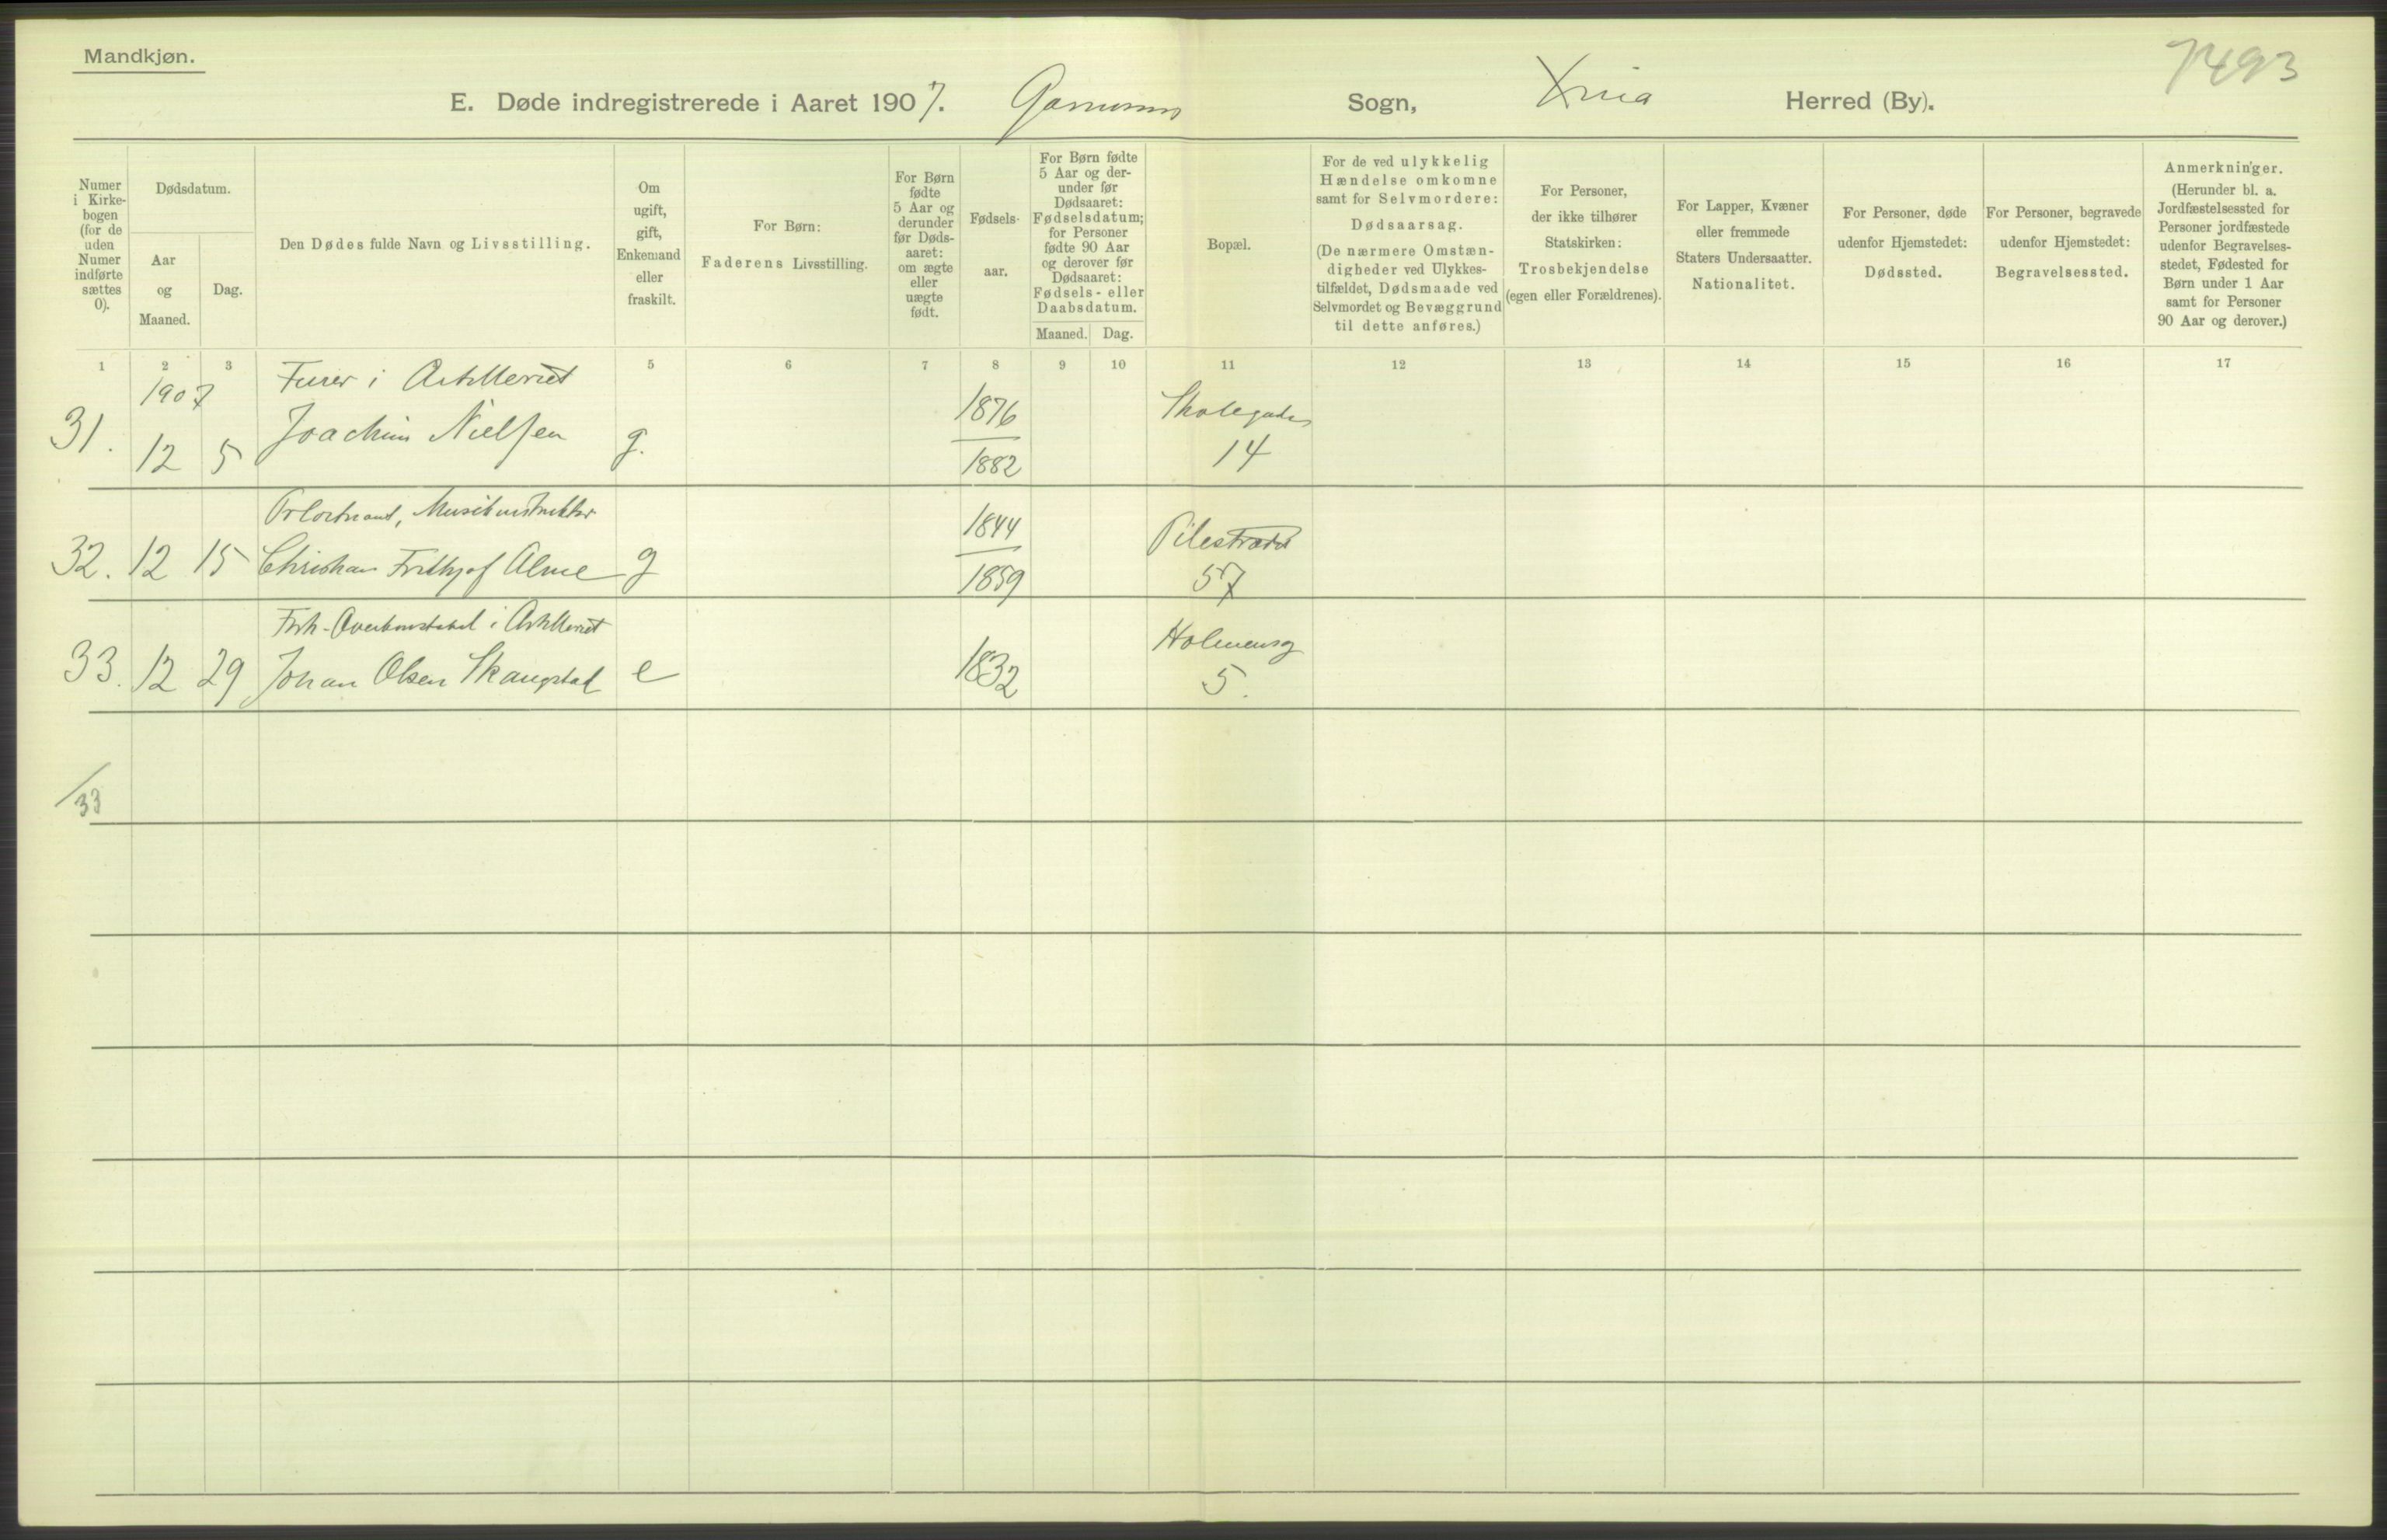 Mandkjøn.
7493
E. Døde indregistrerede i Aaret 1907. Garnisons Sogn, Xnia Herred (By).
Numer i Kirke-bogen (for de uden Numer indførte sættes 0).
Dødsdatum.
Aar og Maaned.
Dag.
Den Dødes fulde Navn og Livsstilling.
Om ugift, gift, Enkemand eller fraskilt.
For Børn: Faderens Livsstilling.
For Børn fødte 5 Aar og derunder før Døds-aaret: om ægte eller uægte født.
Fødsels-aar.
For Børn fødte 5 Aar og der-under før Dødsaaret: Fødselsdatum; for Personer fødte 90 Aar og derover før Dødsaaret: Fødsels- eller Daabsdatum.
Maaned. Dag.
Bopæl.
For de ved ulykkelig Hændelse omkomne samt for Selvmordere: Dødsaarsag. (De nærmere Omstæn-digheder ved Ulykkes-tilfældet, Dødsmaade ved Selvmordet og Bevæggrund til dette anføres.)
For Personer, der ikke tilhører Statskirken: Trosbekjendelse (egen eller Forældrenes).
For Lapper, Kvæner eller fremmede Staters Undersaatter. Nationalitet.
For Personer, døde udenfor Hjemstedet: Dødssted.
For Personer, begravede udenfor Hjemstedet: Begravelsessted.
Anmerkninger. (Herunder bl. a. Jordfæstelsessted for Personer jordfæstede udenfor Begravelses-stedet, Fødested for Børn under 1 Aar samt for Personer 90 Aar og derover.)
1 2 3 5 6 7 8 9 10 11 12 13 14 15 16 17
1907 Furer i Artilleriet 1876 Skolegaden
31. 12 5 Joachim Nielsen g. 1882 14
Prløitnant, Musikinstruktør 1844 Pilestrædet
32. 12 15 Christian Frithjof Alme g 1859 57
Frh. Overkonstabel i Artilleriet Holmensg
33. 12 29 Johan Olsen Skaugstad e 1832 5.
/33